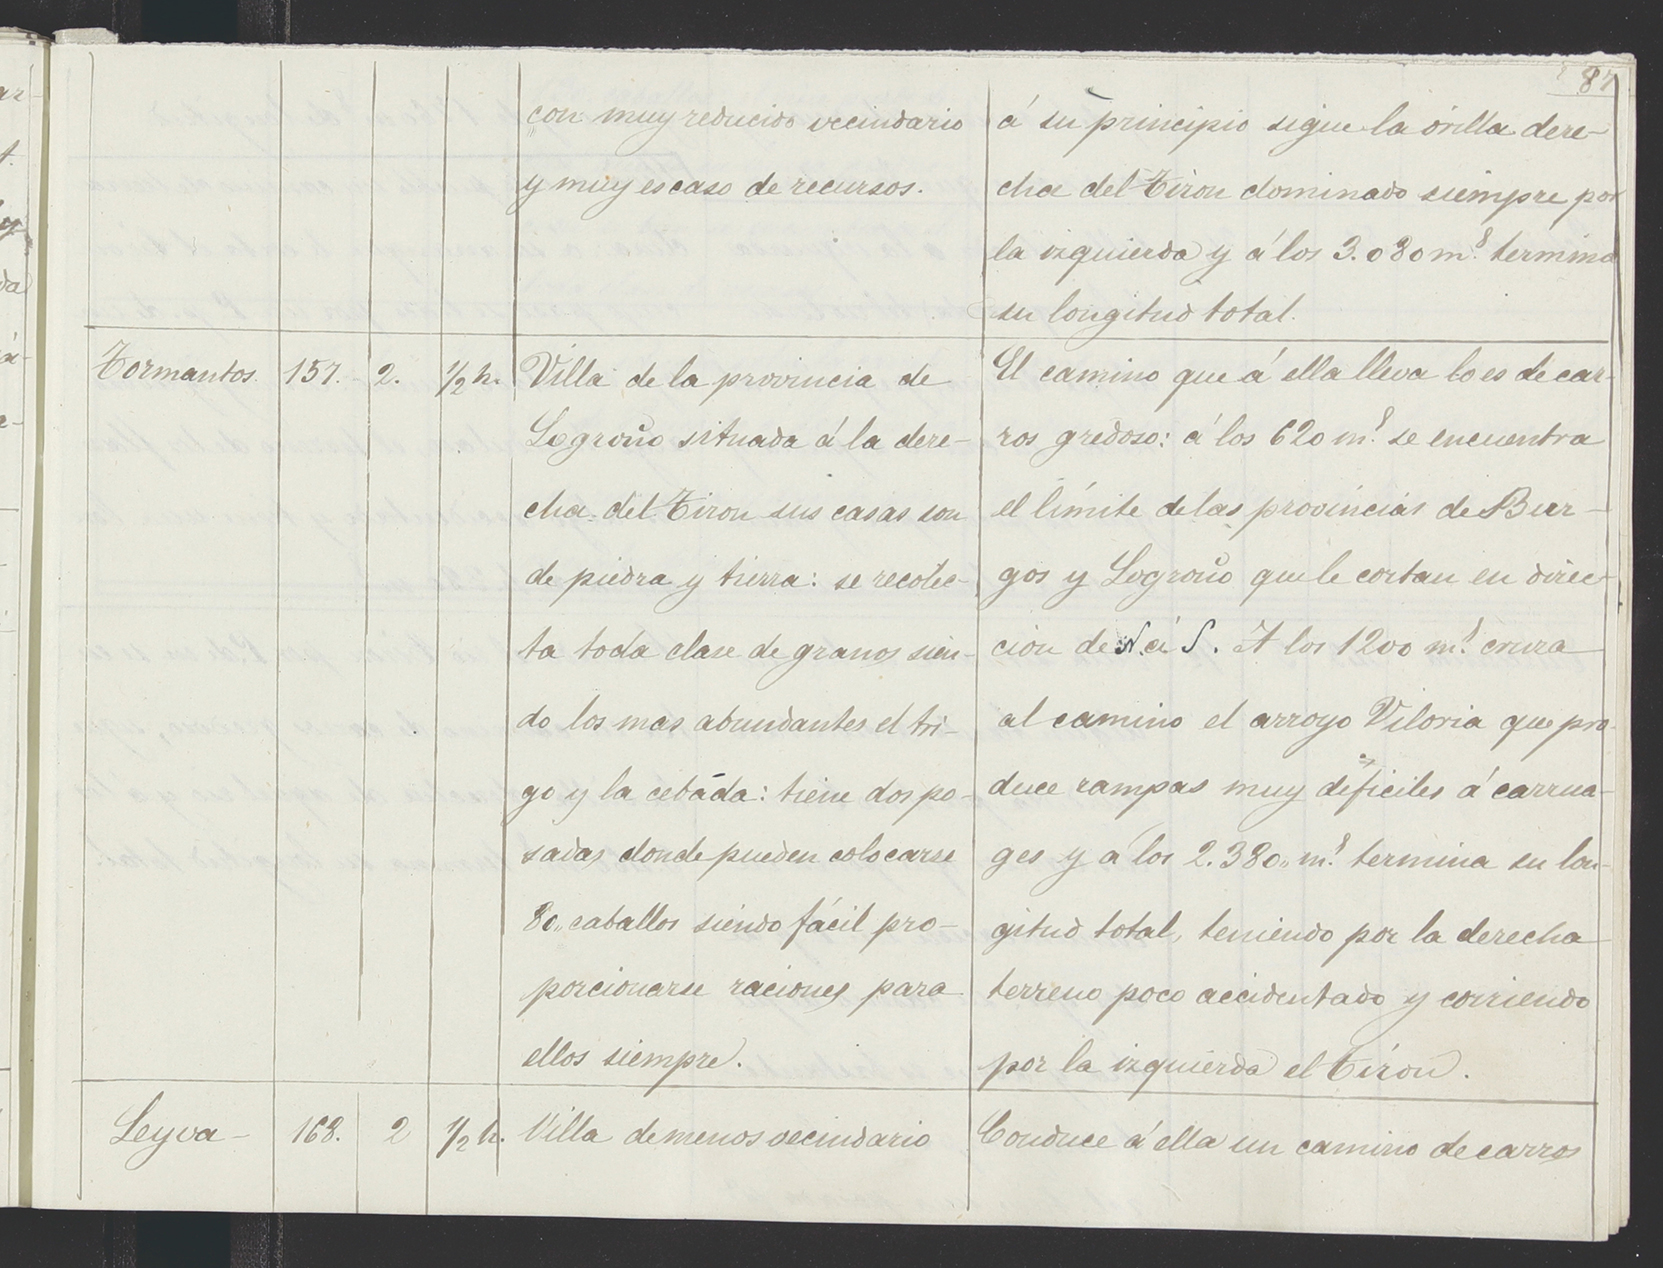 87
con muy reducido vecindario
y muy escaso de recursos.
á su principio sigue la órilla dere-
cha del Tiron dominado siempre por
la izquierda y á los 3.080 m.s termina
su longitud total.
Tormantos. 157. 2. 1/2 h.
Villa de la provincia de
Logroño situada á la dere-
cha del Tiron sus casas son
de piedra y tierra: se recolec-
ta toda clase de granos sien-
do los mas abundantes el tri-
go y la cebada: tiene dos po-
sadas donde pueden colocarse
80,, caballos siendo fácil pro-
porcionarse raciones para
ellos siempre.
El camino que á ella lleva lo es de car-
ros gredoso: á los 620 m.s se encuentra
el límite de las provincias de Bur-
gos y Logroño que le cortan en direc-
cion de N. á S. A los 1200 m.s cruza
al camino el arroyo Viloria que pro-
duce rampas muy dificiles á carrua-
ges y a los 2.380,, m.s termina su lon-
gitud total, teniendo por la derecha
terreno poco accidentado y corriendo
por la izquierda el Tiron.
Leyva - 168. 2 1/2 h.
Villa de menos vecindario
Conduce á ella un camino de carros